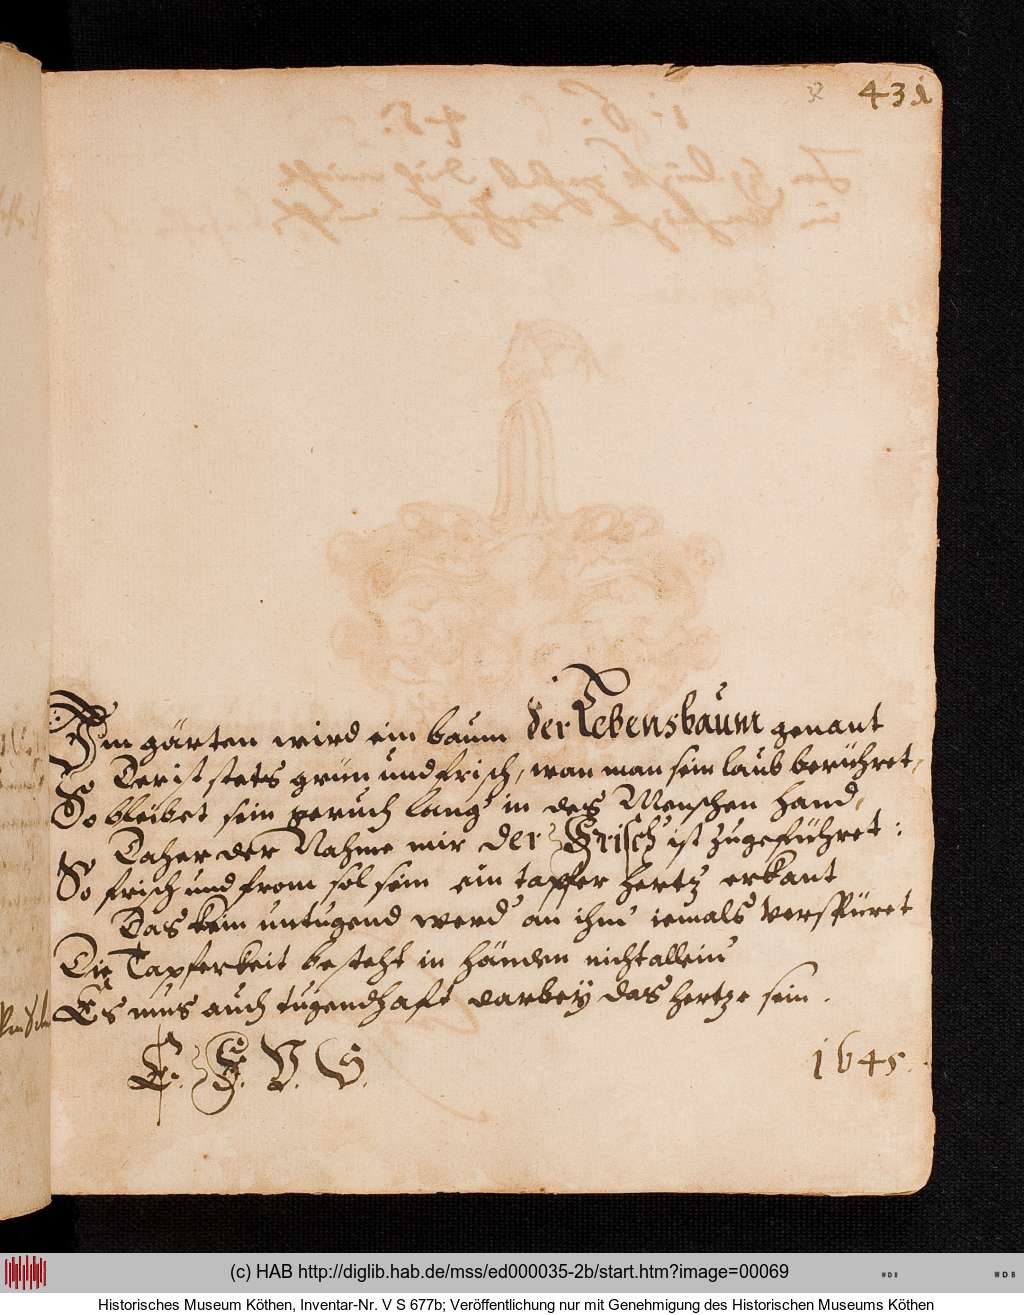 32 431
Im gärten wird ein baum der Lebensbaum genant
Der ist stets grün und frisch, wan man sein laub berühret,
So bleibet sein geruch lang' in des Menschen hand,
Daher der Nahme mir der Frisch' ist zugeführet:
So frisch und from sol sein ein tapfer hertz erkant
Das kein untugend werd' an ihm iemals verspüret
Die Tapferkeit besteht in händen nicht allein
Es mus auch tugendhaft darbey das hertze sein.
C. E. V. S. 1645.
(c) HAB http://diglib.hab.de/mss/ed000035-2b/start.htm?image=00069
WDB WDB
Historisches Museum Köthen, Inventar-Nr. V S 677b; Veröffentlichung nur mit Genehmigung des Historischen Museums Köthen